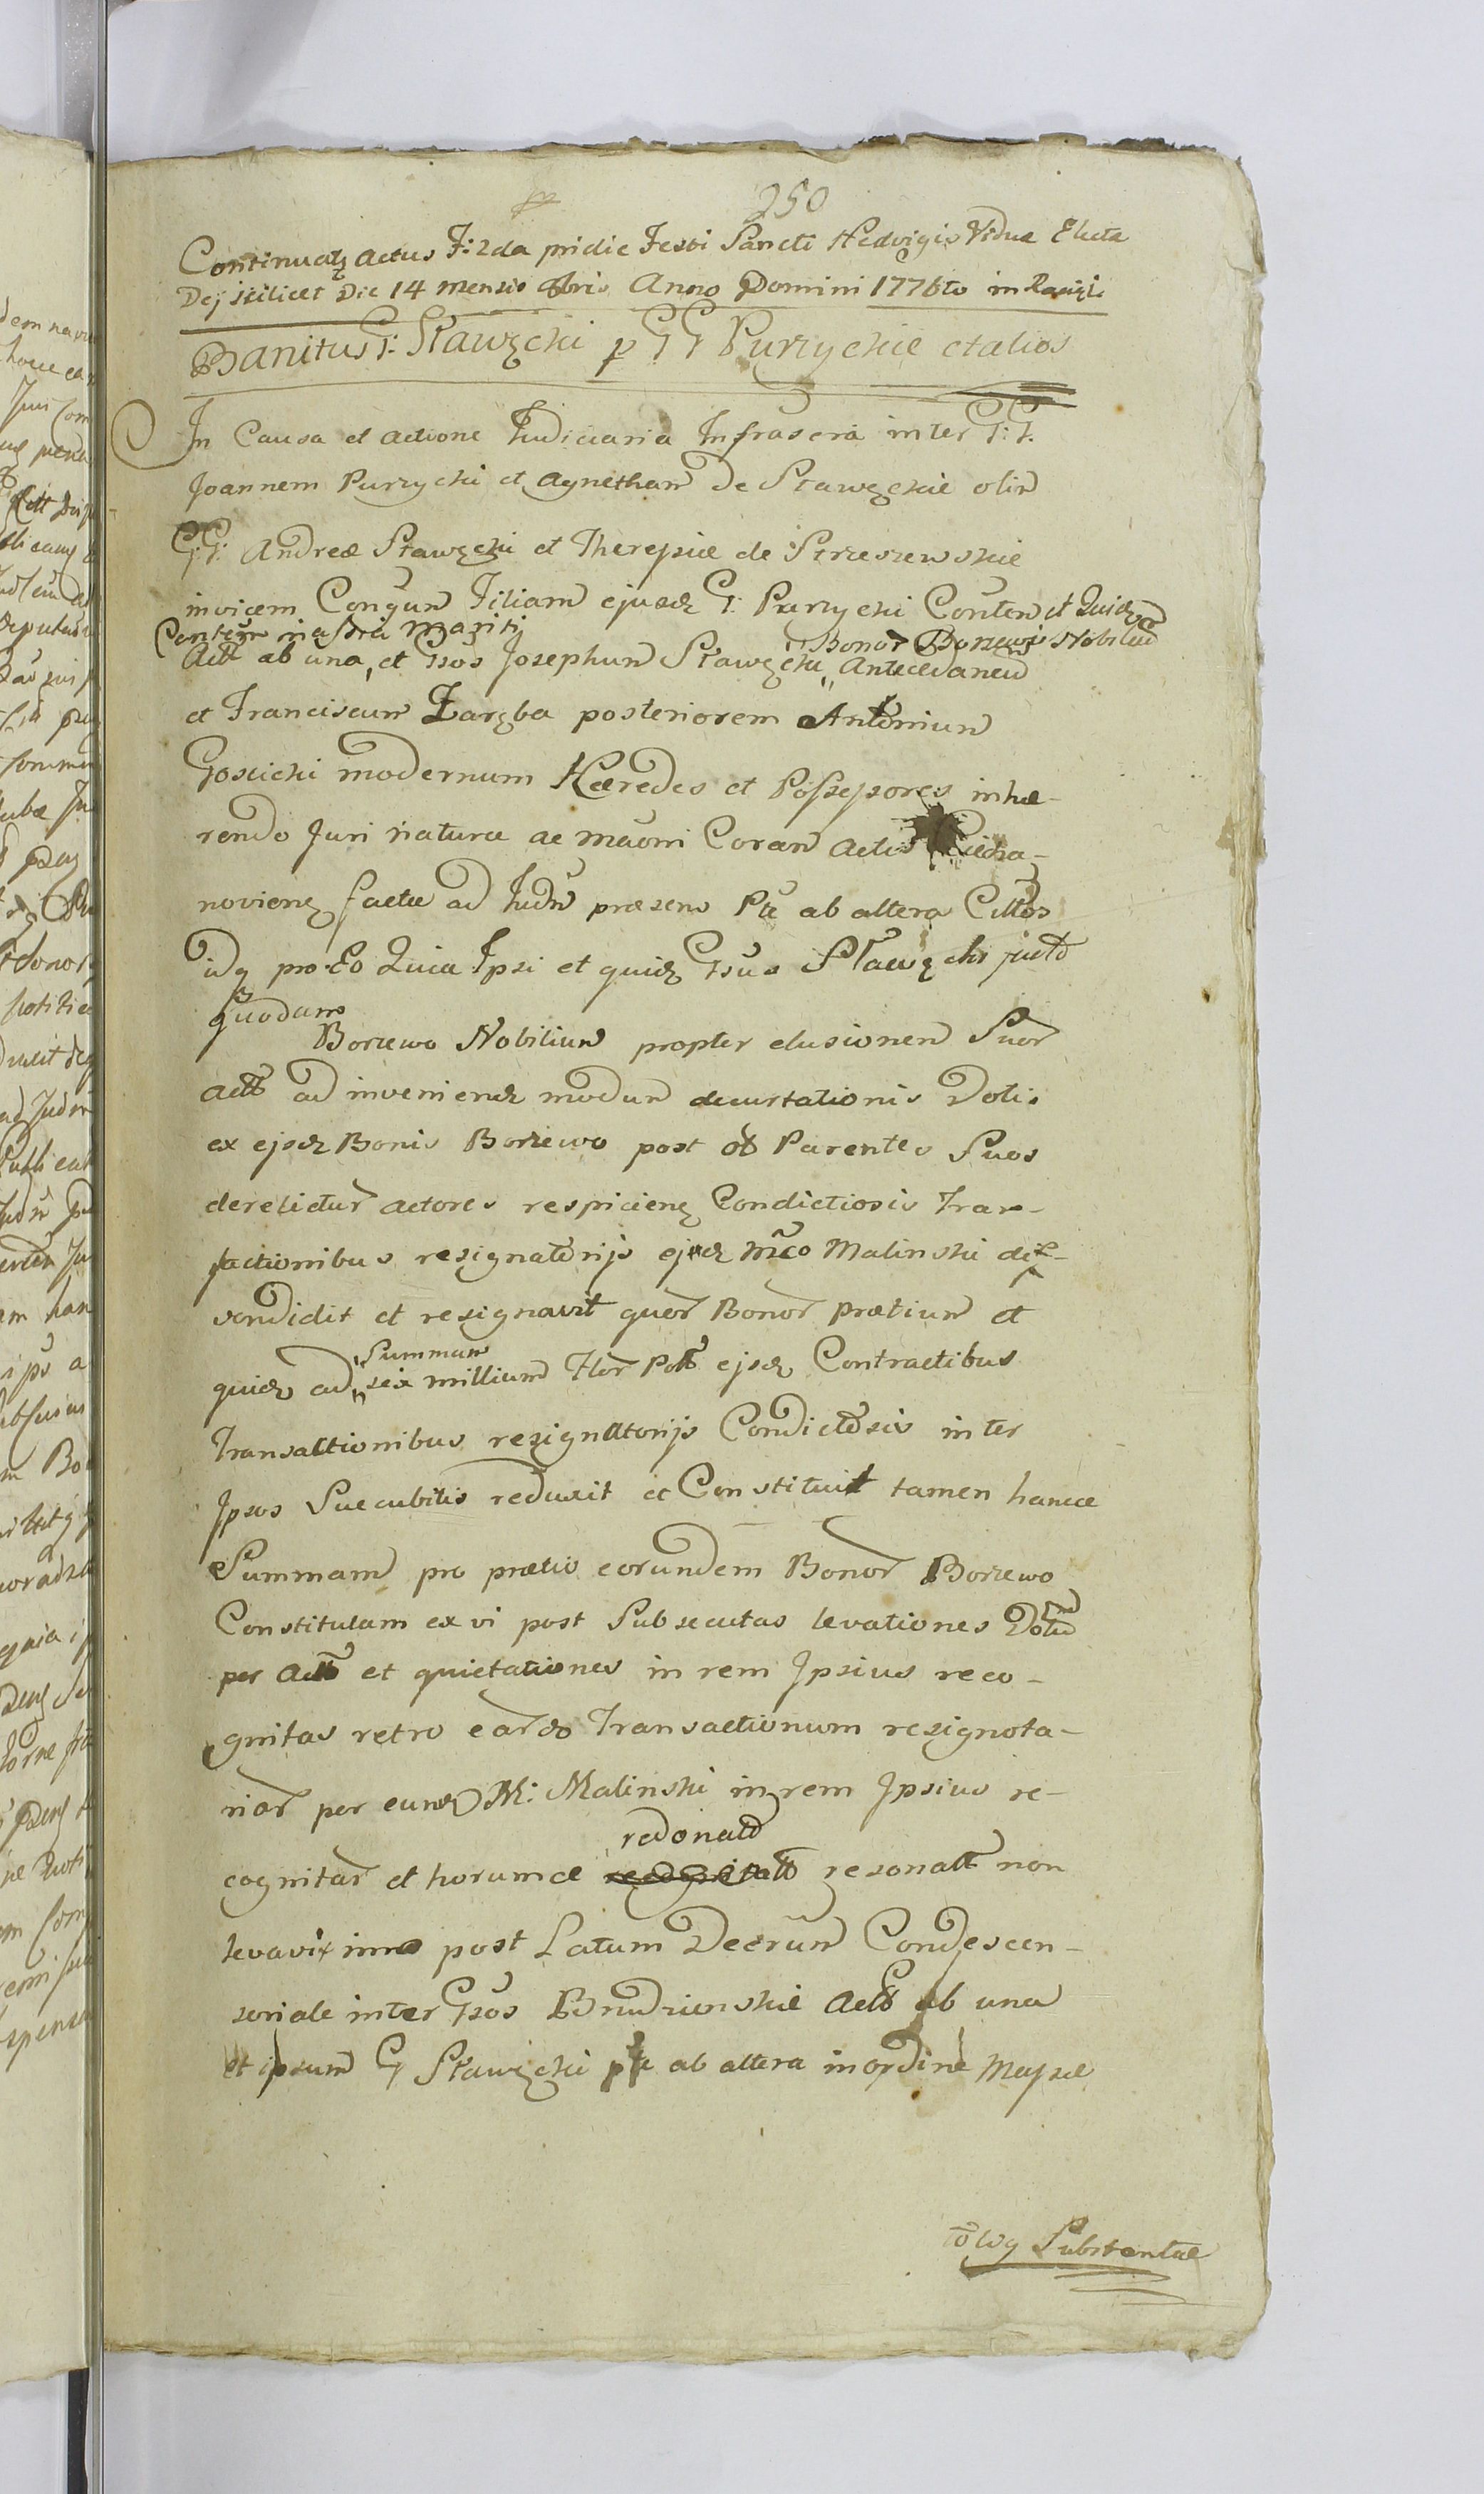 250
Continuatq actus F: 2da pridie Festi Sancti Hedvigis Viduæ Electa
Dej scilicet Die 14 mensis 8bris Anno Domini 1776to in
Banitus G: Stawęcki p GG Purzyckie et alios
In Causa et actione Judiciaria Infrascrã inter G:G.
Joannem Purzycki et Agnetham De Stawęckie olim
G:G: Andreæ Stawęcki et Theressiæ de Strzeszewskie
invicem Conguñ Filiam ejusd G: Purzycki Consten et Quid
mariti
Bonor Borzewo Nobilium
Act ab una, et Gsos Josephum Stawęcki Antecedaneum
et Franciscum Zaręba posteriorem Antonium
Gosicki modernum Hæredes et Possessores inhæ-
rendo Juri naturæ ac Coram actis Ciecha-
novienq factæ ad Judm præsens Pte ab altera Cittos
idq pro Eo Quia Ipsi et quid Gsus Stawęcki
quodam
Borzewo Nobilium propter elusionem Suor
actt ad inveniend modum decurtationis Dotis
ex ejsd Bonis Borzewo post ob Parentes Suos
derelictur actores respicienq Condictiosis Tran-
sactionibus resignatorijs ejsd Mfco Malinski
vendidit et resignavit quor Bonor prætium et
Summam
quid ad sex millium Flor Poll ejsd Contractibus
Transactionibus resignatorijs Condictosis inter
Ipsos Succubitis reduxit et Constituit tamen hancce
Summam pro prætio eorundem Bonor Borzewo
Constitutam ex vi post Subsecutas levationes Dotu
per actt et quietationes in rem Ipsius reco-
gnitas retro eardo Transactionum resignota-
riar per eund M: Malinski in rem Ipsius re-
redonatt
cognitar et horumce resonatt non
levavit imo post Latum Decrum Condescen-
soriale inter Gsos Brudzienskie actt ab una
et ipsum G Stawęcki pte ab altera in ordine Massæ
Substantiæ